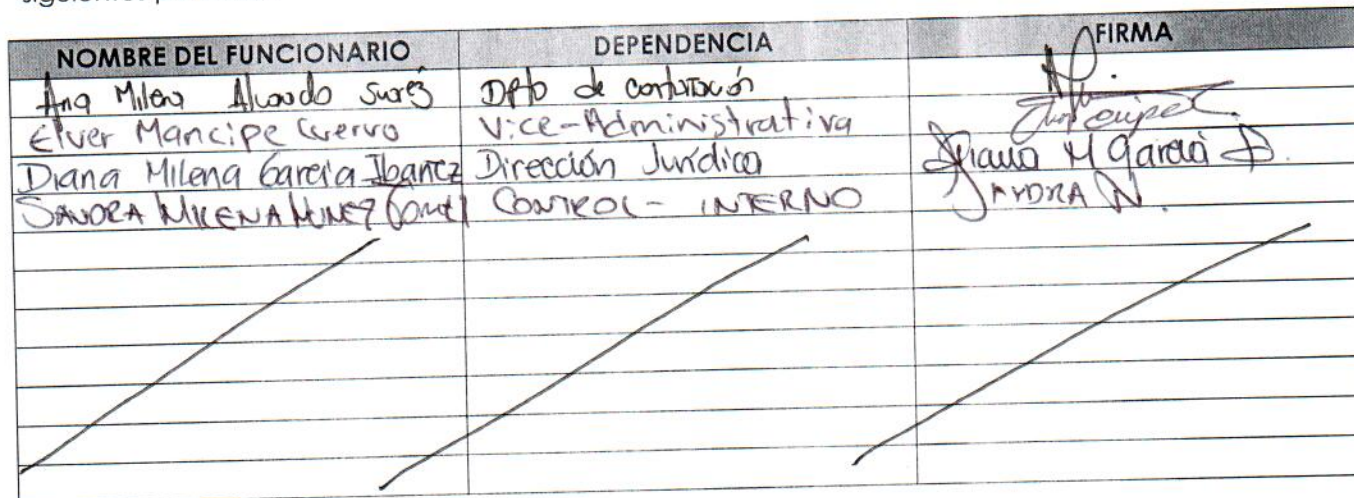 NOMBRE DEL FUNCIONARIO DEPENDENCIA FIRMA
Ana Milena Alvarado Suarez Dpto de contratación
Elver Mancipe Cuervo Vice-Administrativa
Diana Milena Garcia Ibañez Dirección Jurídica Diana M Garcia
SANDRA MILENA CONTROL - INTERNO SANDRA N.